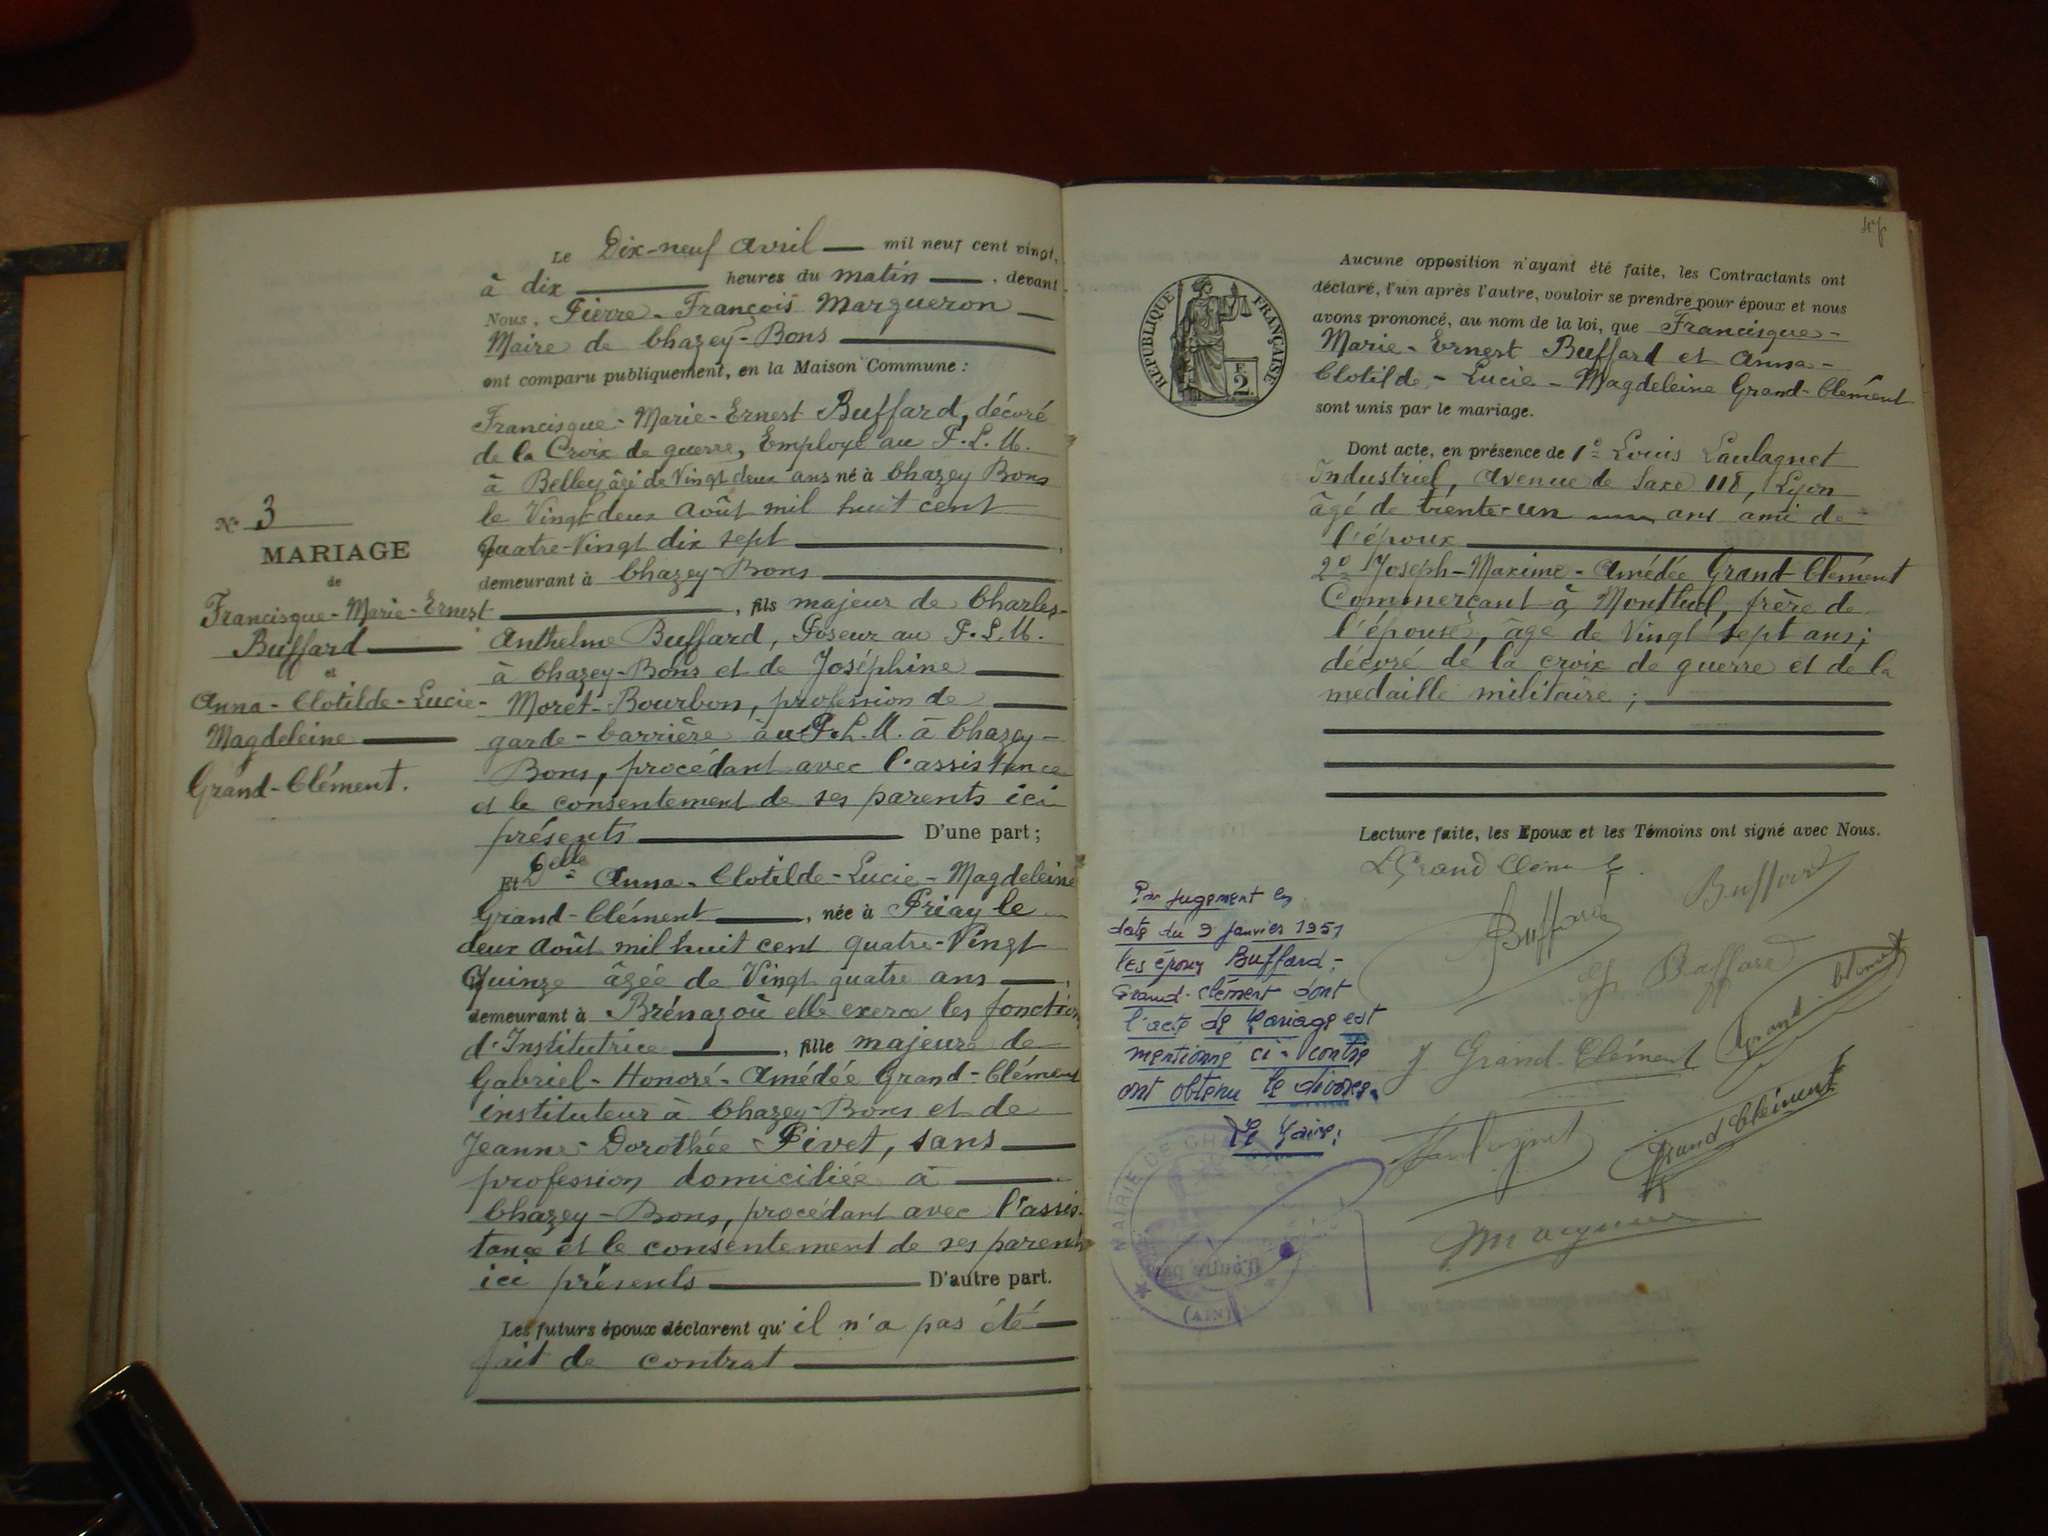 Nº 3
MARIAGE
de
Francisque-Marie-Ernest
Buffard
et
Anna-Clotilde-Lucie-
Magdeleine
Grand-Clément.
Le Dix-neuf Avril mil neuf cent vingt,
à dix heures du matin, devant
Nous, Pierre-François Margueron
Maire de Chazey-Bons
ont comparu publiquement, en la Maison Commune :
Francisque-Marie-Ernest Buffard, décoré
de la Croix de guerre, Employé au P.L.M.
à Belley âgé de Vingt deux ans né à Chazey Bons
le Vingt deux Août mil huit cent
quatre-Vingt dix sept
demeurant à Chazey-Bons
, fils majeur de Charles-
Anthelme Buffard, Poseur au P.L.M.
à Chazey-Bons et de Joséphine
Moret-Bourbon, profession de
garde-barrière au P.L.M. à Chazey-
Bons, procédant avec l'assistance
et le consentement de ses parents ici
présents D'une part ;
Et Delle Anna-Clotilde-Lucie-Magdeleine
Grand-Clément, née à Priay le
deux Août mil huit cent quatre-Vingt
Quinze âgée de Vingt quatre ans,
demeurant à Brénaz où elle exerce les fonction
d'Institutrice, fille majeure de
Gabriel-Honoré-Amédée Grand-Clément
instituteur à Chazey-Bons et de
Jeanne-Dorothée Pivet, sans
profession domiciliée à
Chazey-Bons, procédant avec l'assis-
tance et le consentement de ses parents
ici présents D'autre part.
Les futurs époux déclarent qu'il n'a pas été
fait de contrat
RÉPUBLIQUE FRANÇAISE
F. 2
Aucune opposition n'ayant été faite, les Contractants ont
déclaré, l'un après l'autre, vouloir se prendre pour époux et nous
avons prononcé, au nom de la loi, que Francisque-
Marie-Ernest Buffard et Anna-
Clotilde-Lucie-Magdeleine Grand-Clément
sont unis par le mariage.
Dont acte, en présence de 1º Louis Laulagnet
Industriel, Avenue de Saxe 118, Lyon
âgé de trente-un ans ami de
l'époux
2º Joseph-Maxime-Amédée Grand-Clément
Commerçant à Montluel, frère de
l'épouse, âgé de Vingt sept ans;
décoré de la croix de guerre et de la
médaille militaire ;
Lecture faite, les Epoux et les Témoins ont signé avec Nous.
Buffard
Buffard
Buffard
J Grand-Clément
Grand Clément
Grand Clément
Laulagnet
Par jugement en
date du 9 janvier 1951
les époux Buffard-
Grand-Clément dont
l'acte de Mariage est
mentionné ci-contre
ont obtenu le divorce.
Le Maire,
MAIRIE DE CH
(AIN)